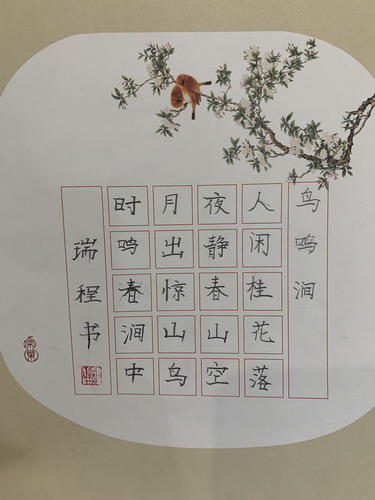 鸟鸣涧
人闲桂花落
夜静春山空
月出惊山鸟
时鸣春涧中
瑞程书